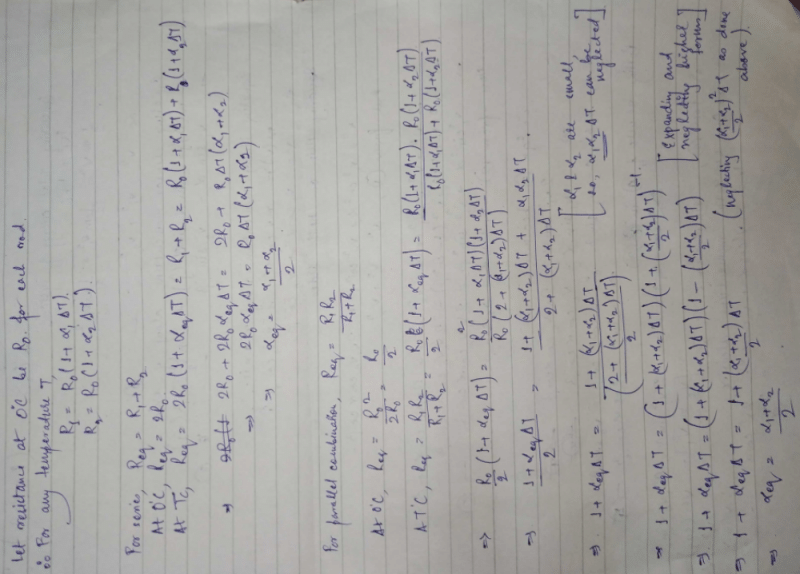 Let resistance at 0°C be R₀ for each rod.
∴ For any temperature T,
R₁ = R₀(1+α₁ΔT)
R₂ = R₀(1+α₂ΔT)
For series, Req = R₁+R₂
At 0°C, Req = 2R₀
At T°C, Req = 2R₀(1+αeqΔT) = R₁+R₂ = R₀(1+α₁ΔT) + R₀(1+α₂ΔT)
⇒ 2R₀ + 2R₀αeqΔT = 2R₀ + R₀ΔT(α₁+α₂)
⇒ 2R₀αeqΔT = R₀ΔT(α₁+α₂)
⇒ αeq = (α₁+α₂)/2
For parallel combination, Req = R₁R₂/(R₁+R₂)
At 0°C, Req = R₀²/2R₀ = R₀/2
At T°C, Req = R₁R₂/(R₁+R₂) = R₀/2 (1+αeqΔT) = R₀(1+α₁ΔT).R₀(1+α₂ΔT)/(R₀(1+α₁ΔT)+R₀(1+α₂ΔT))
⇒ R₀/2 (1+αeqΔT) = R₀(1+α₁ΔT)(1+α₂ΔT)/(R₀(2+(α₁+α₂)ΔT))
⇒ (1+αeqΔT)/2 = (1+(α₁+α₂)ΔT + α₁α₂ΔT)/(2+(α₁+α₂)ΔT)
⇒ 1+αeqΔT = (1+(α₁+α₂)ΔT)/((2+(α₁+α₂)ΔT)/2) [α₁ & α₂ are small,
so, α₁α₂ΔT can be
neglected]
⇒ 1+αeqΔT = (1+(α₁+α₂)ΔT)(1+((α₁+α₂)/2)ΔT)⁻¹
⇒ 1+αeqΔT = (1+(α₁+α₂)ΔT)(1-((α₁+α₂)/2)ΔT) [Expanding and
neglecting higher
terms]
⇒ 1+αeqΔT = 1+((α₁+α₂)/2)ΔT (neglecting (α₁+α₂)²/2 ΔT as done
above).
⇒ αeq = (α₁+α₂)/2